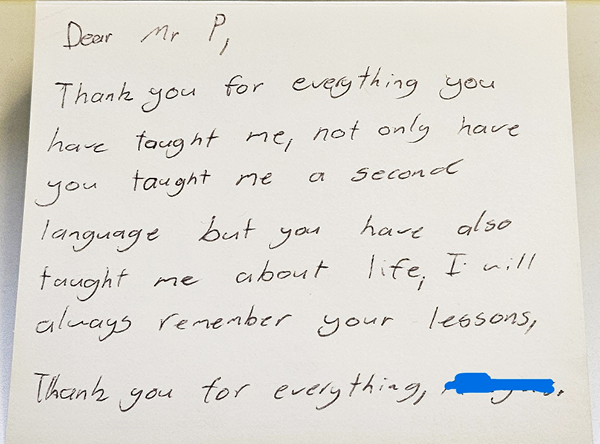 Dear Mr P,
Thank you for everything you
have taught me, not only have
you taught me a second
language but you have also
taught me about life, I will
always remember your lessons,
Thank you for everything,